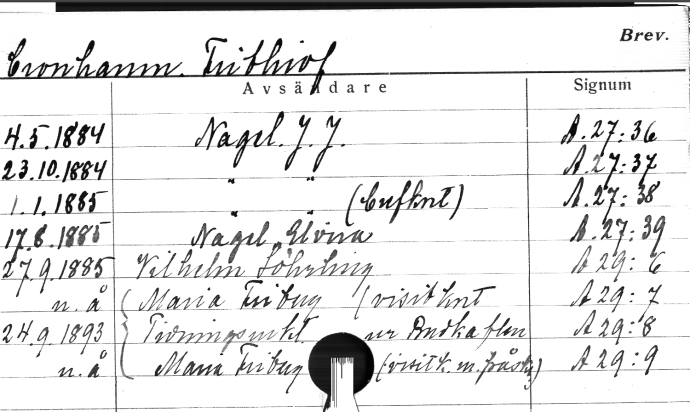 Brev.
Cronhamn. Frithiof
Avsändare Signum
4.5.1884 Nagel. J. J. A.27:36
23.10.1884 " " A.27:37
1.1.1885 " " A.27:38
17.8.1885 Nagel, Elvira A.27:39
27.9.1885 Vilhelm A 29:6
n. å Maria Friberg (visitkort A 29:7
24.9 1893 Tidningsurkl ur A 29:8
n. å Maria Friberg (visitk. m. A 29:9